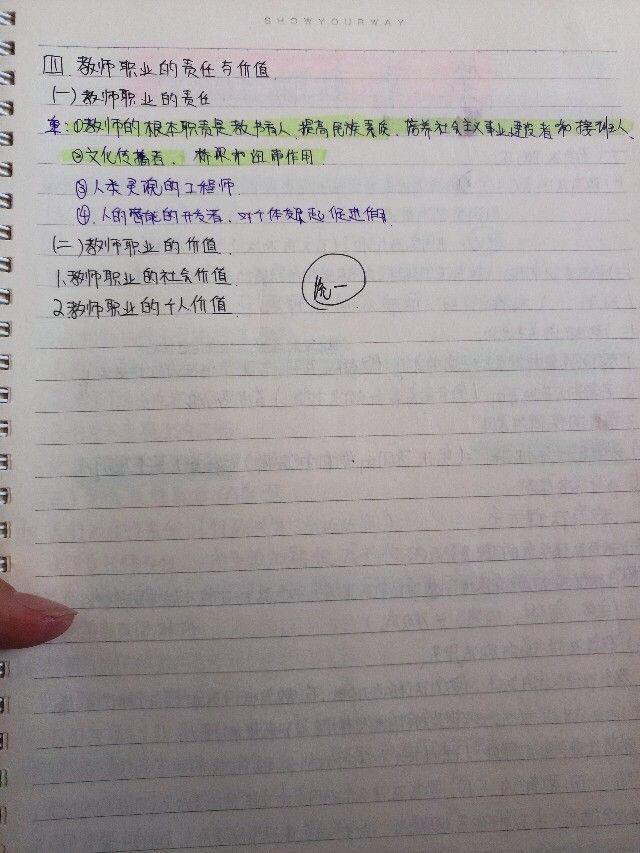 SHOWYOURWAY
11 教师职业的责任与价值
(一)教师职业的责任
单:①教师的根本职责是教书育人、提高民族素质、培养社会主义事业建设者和接班人
②文化传播者、桥梁和纽带作用
③人类灵魂的工程师
④.人的智能的开发者、对个体发展起促进作用
(二)教师职业的价值
1.教师职业的社会价值
2.教师职业的个人价值
统一